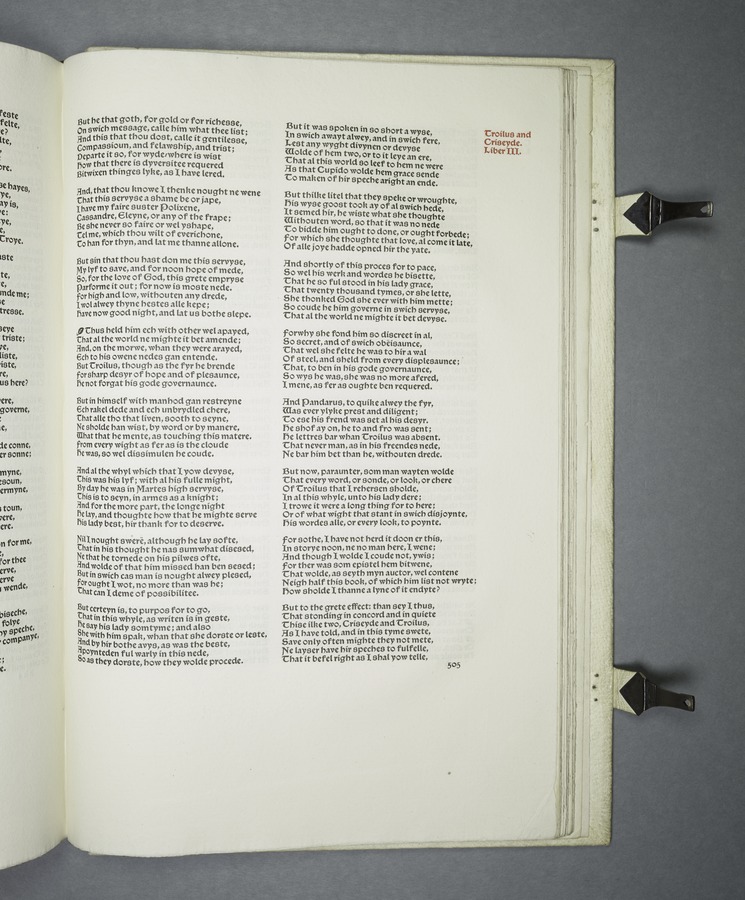 feste
felte,
e?
lte,
ore.
se hayes,
ye,
ay is,
ve:
ve,
e,
Troye.
aste
te,
e,
nde me;
se
tresse.
seye
triste;
ye,
liste,
riste,
re,
us here?
ere,
governe,
de conne,
er sonne:
myne,
esoun,
ermyne,
toun,
vere,
ere.
n for me,
for thee
erve,
erve
wende,
biseche,
folye
ny speche,
companye,
;
e.
But he that goth, for gold or for richesse,
On swich message, calle him what thee list;
And this that thou dost, calle it gentilesse,
Compassioun, and felawship, and trist;
Departe it so, for wyde/where is wist
How that there is dyversitee requered
Bitwixen thinges lyke, as I have lered.
And, that thou knowe I thenke nought ne wene
That this servyse a shame be or jape,
I have my faire suster Polixene,
Cassandre, Eleyne, or any of the frape;
Be she never so faire or wel yshape,
Tel me, which thou wilt of everichone,
To han for thyn, and lat me thanne allone.
But sin that thou hast don me this servyse,
My lyf to save, and for noon hope of mede,
So, for the love of God, this grete empryse
Parforme it out; for now is moste nede.
For high and low, withouten any drede,
I wol alwey thyne hestes alle kepe;
Have now good night, and lat us bothe slepe.
Thus held him ech with other wel apayed,
That al the world ne mighte it bet amende;
And, on the morwe, whan they were arayed,
Ech to his owene nedes gan entende.
But Troilus, though as the fyr he brende
For sharp desyr of hope and of plesaunce,
He not forgat his gode governaunce.
But in himself with manhod gan restreyne
Ech rakel dede and ech unbrydled chere,
That alle tho that liven, sooth to seyne,
Ne sholde han wist, by word or by manere,
What that he mente, as touching this matere.
From every wight as fer as is the cloude
He was, so wel dissimulen he coude.
And al the whyl which that I yow devyse,
This was his lyf; with al his fulle might,
By day he was in Martes high servyse,
This is to seyn, in armes as a knight;
And for the more part, the longe night
He lay, and thoughte how that he mighte serve
His lady best, hir thank for to deserve.
Nil I nought swerë, although he lay softe,
That in his thought he nas sumwhat disesed,
Ne that he tornede on his pilwes ofte,
And wolde of that him missed han ben sesed;
But in swich cas man is nought alwey plesed,
For ought I wot, no more than was he;
That can I deme of possibilitee.
But certeyn is, to purpos for to go,
That in this whyle, as writen is in geste,
He say his lady somtyme; and also
She with him spak, whan that she dorste or leste,
And by hir bothe avys, as was the beste,
Apoynteden ful warly in this nede,
So as they dorste, how they wolde procede.
But it was spoken in so short a wyse,
In swich awayt alwey, and in swich fere,
Lest any wyght divynen or devyse
Wolde of hem two, or to it leye an ere,
That al this world so leef to hem ne were
As that Cupido wolde hem grace sende
To maken of hir speche aright an ende.
But thilke litel that they speke or wroughte,
His wyse goost took ay of al swich hede,
It semed hir, he wiste what she thoughte
Withouten word, so that it was no nede
To bidde him ought to done, or ought forbede;
For which she thoughte that love, al come it late,
Of alle joye hadde opned hir the yate.
And shortly of this proces for to pace,
So wel his werk and wordes he bisette,
That he so ful stood in his lady grace,
That twenty thousand tymes, or she lette,
She thonked God she ever with him mette;
So coude he him governe in swich servyse,
That al the world ne mighte it bet devyse.
Forwhy she fond him so discreet in al,
So secret, and of swich obëisaunce,
That wel she felte he was to hir a wal
Of steel, and sheld from every displesaunce;
That, to ben in his gode governaunce,
So wys he was, she was no more afered,
I mene, as fer as oughte ben requered.
And Pandarus, to quike alwey the fyr,
Was ever ylyke prest and diligent;
To ese his frend was set al his desyr.
He shof ay on, he to and fro was sent;
He lettres bar whan Troilus was absent.
That never man, as in his freendes nede,
Ne bar him bet than he, withouten drede.
But now, paraunter, som man wayten wolde
That every word, or sonde, or look, or chere
Of Troilus that I rehersen sholde,
In al this whyle, unto his lady dere;
I trowe it were a long thing for to here;
Or of what wight that stant in swich disjoynte,
His wordes alle, or every look, to poynte.
For sothe, I have not herd it doon er this,
In storye noon, ne no man here, I wene;
And though I wolde I coude not, ywis;
For ther was som epistel hem bitwene,
That wolde, as seyth myn auctor, wel contene
Neigh half this book, of which him list not wryte;
How sholde I thanne a lyne of it endyte?
But to the grete effect: than sey I thus,
That stonding in concord and in quiete
Thise ilke two, Criseyde and Troilus,
As I have told, and in this tyme swete,
Save only often mighte they not mete,
Ne layser have hir speches to fulfelle,
That it befel right as I shal yow telle,
Troilus and
Criseyde.
Liber III.
505